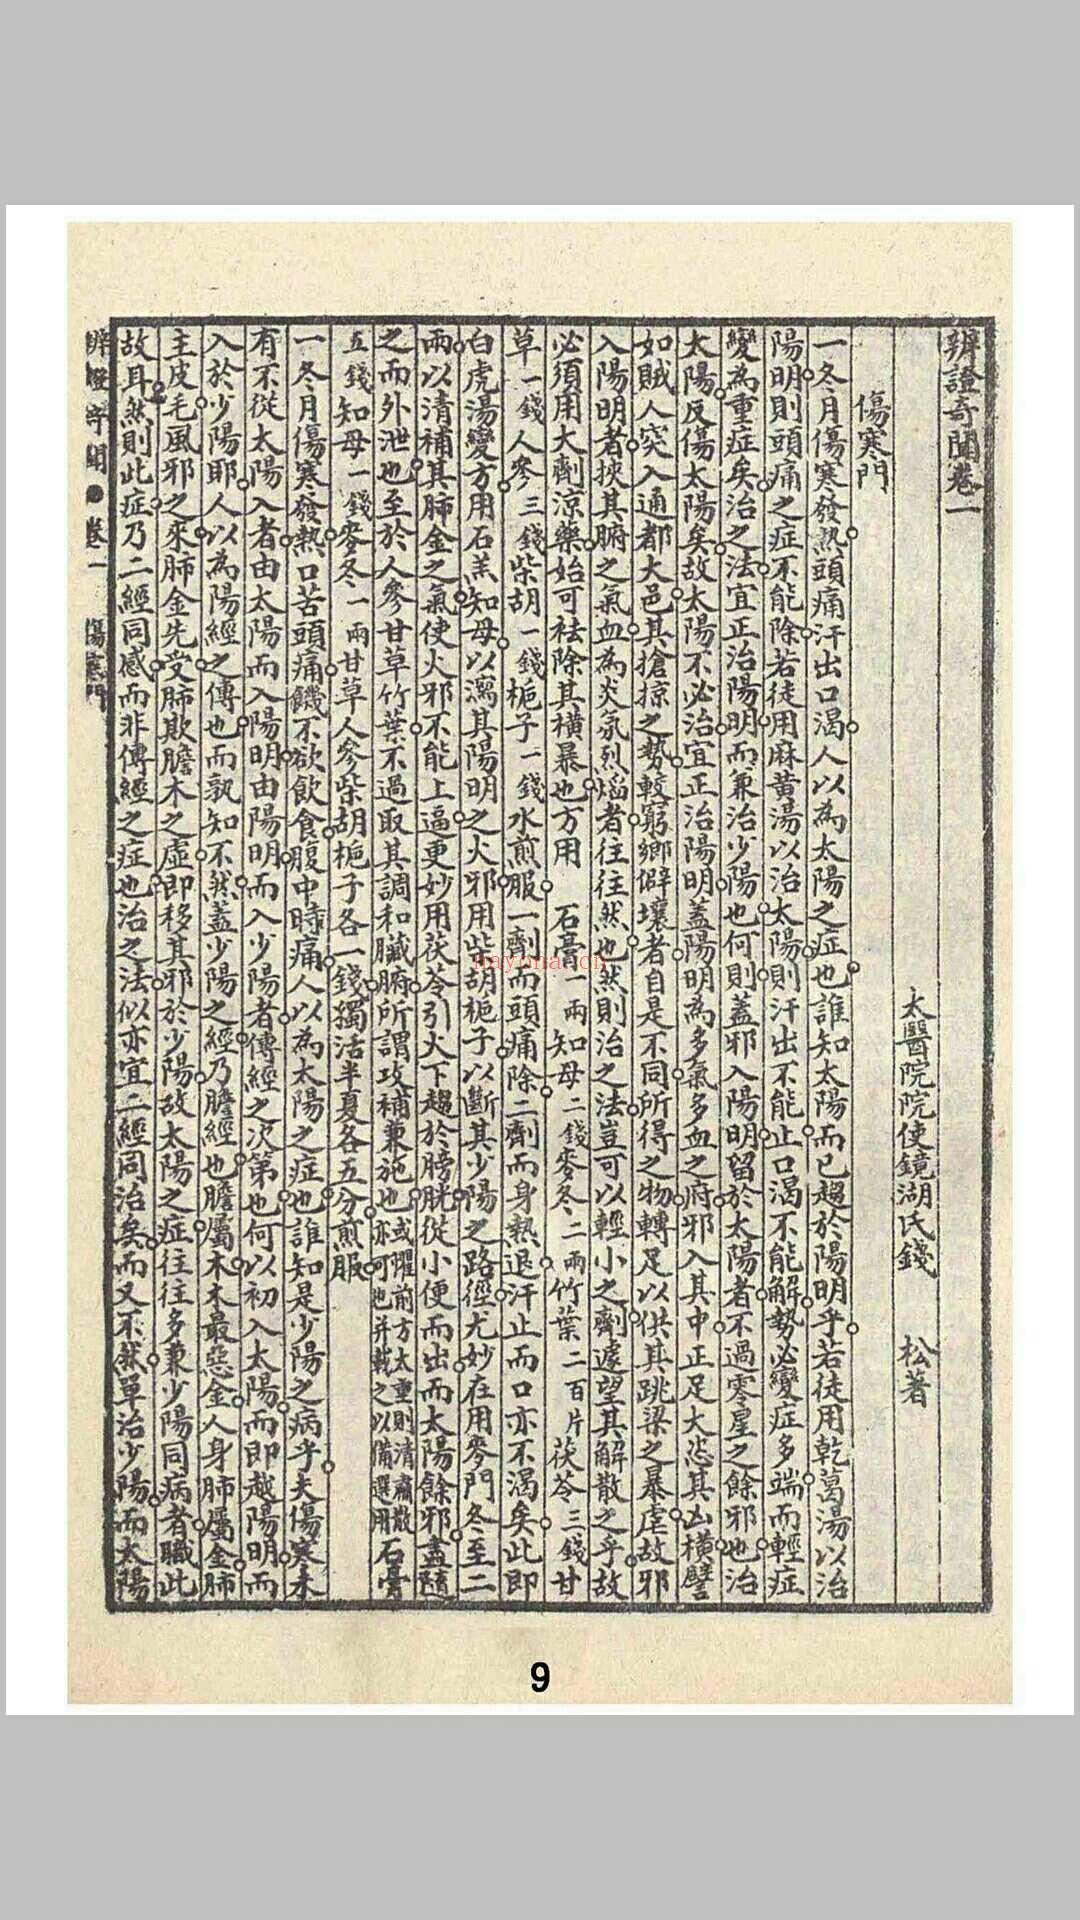 辨證奇聞卷一
太醫院院使鏡湖氏錢 松著
傷寒門
一冬月傷寒發熱頭痛汗出口渴人以為太陽之症也誰知太陽而已趨於陽明乎若徒用乾葛湯以治
陽明則頭痛之症不能除若徒用麻黃湯以治太陽則汗出不能止口渴不能解勢必變症多端而輕症
變為重症矣治之法宜正治陽明而兼治少陽也何則蓋邪入陽明留於太陽者不過零星之餘邪也治
太陽反傷太陽矣故太陽不必治宜正治陽明蓋陽明為多氣多血之府邪入其中正足大恣其凶橫譬
如賊人突入通都大邑其搶掠之勢較窮鄉僻壤者自是不同所得之物轉足以供其跳梁之暴虐故邪
入陽明者挾其腑之氣血為炎氛烈熖者往往然也然則治之法豈可以輕小之劑遽望其解散之乎故
必須用大劑涼藥始可袪除其橫暴也方用 石膏一兩知母二錢麥冬二兩竹葉二百片茯苓三錢甘
草一錢人參三錢柴胡一錢梔子一錢水煎服一劑而頭痛除二劑而身熱退汗止而口亦不渴矣此即
白虎湯變方用石羔知母以瀉其陽明之火邪用柴胡梔子以斷其少陽之路徑尤妙在用麥門冬至二
兩以清補其肺金之氣使火邪不能上逼更妙用茯苓引火下趨於膀胱從小便而出而太陽餘邪盡隨
之而外泄也至於人參甘草竹葉不過取其調和臟腑所謂攻補兼施也或懼前方太重則清肅散亦可也并載之以備選用石膏
五錢知母一錢麥冬一兩甘草人參柴胡梔子各一錢獨活半夏各五分煎服
一冬月傷寒發熱口苦頭痛饑不欲飲食腹中時痛人以為太陽之症也誰知是少陽之病乎夫傷寒未
有不從太陽入者由太陽而入陽明由陽明而入少陽者傳經之次第也何以初入太陽而即越陽明而
入於少陽耶人以為陽經之傳也而孰知不然蓋少陽之經乃膽經也膽屬木木最惡金人身肺屬金肺
主皮毛風邪之來肺金先受肺欺膽木之虛即移其邪於少陽故太陽之症往往多兼少陽同病者職此
故耳然則此症乃二經同感而非傳經之症也治之法似亦宜二經同治矣而又不然單治少陽而太陽
辨證奇聞 卷一 傷寒門
9
nayona.cn